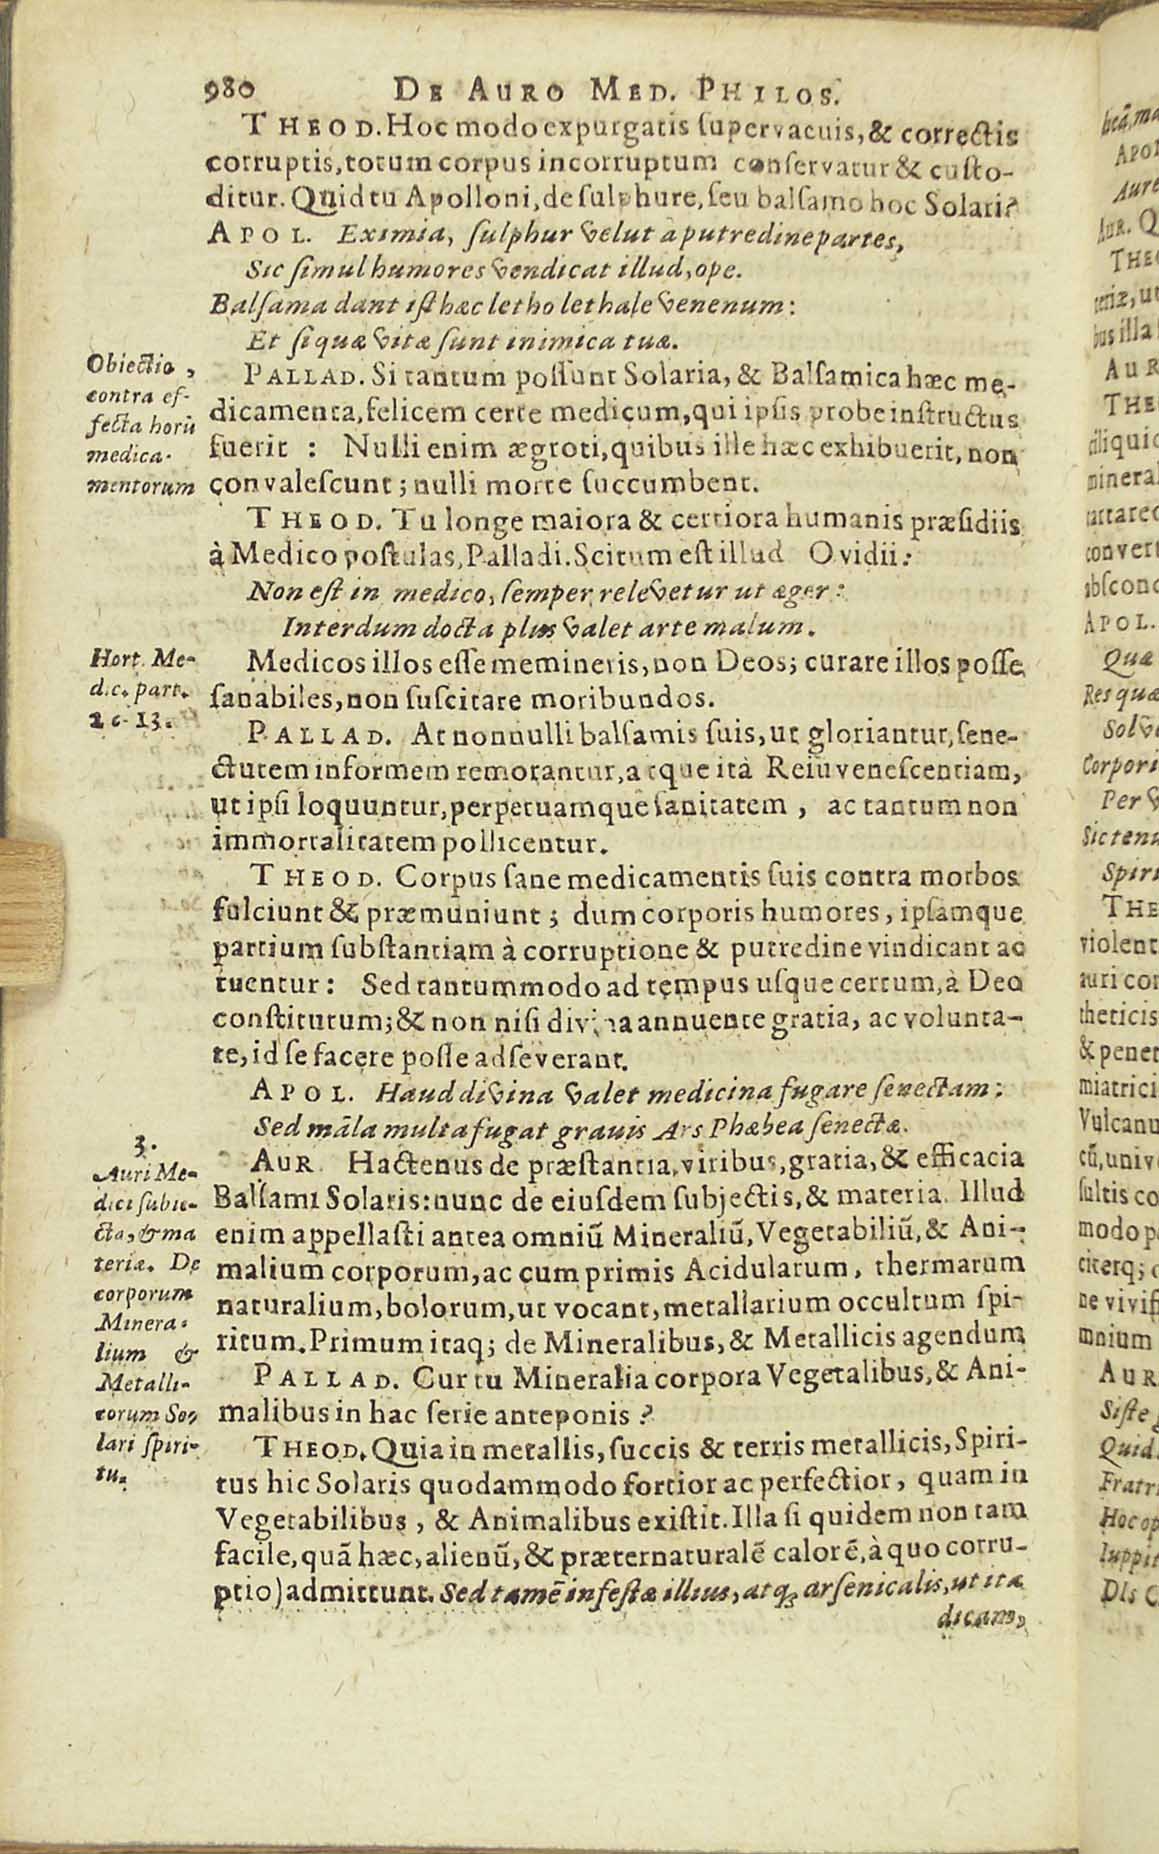 980 DE AURO MED. PHILOS.
THEOD. Hoc modo expurgatis supervacuis, & correctis
corruptis, totum corpus incorruptum conservatur & custo-
ditur. Quid tu Apolloni, de sulphure, seu balsamo hoc Solari?
APOL. Eximia, sulphur velut à putredine partes,
Sic simul humores vendicat illud, ope.
Balsama dant isthæc letho lethale venenum:
Et si quæ vitæ sunt inimica tuæ.
PALLAD. Si tantum possunt Solaria, & Balsamica hæc me-
dicamenta, felicem certe medicum, qui ipsis probe instructus
fuerit : Nulli enim ægroti, quibus ille hæc exhibuerit, non
convalescunt; nulli morte succumbent.
THEOD. Tu longe maiora & certiora humanis præsidiis
à Medico postulas, Palladi. Scitum est illud Ovidii:
Non est in medico, semper relevetur ut æger:
Interdum docta plus valet arte malum.
Medicos illos esse memineris, non Deos; curare illos posse
sanabiles, non suscitare moribundos.
PALLAD. At nonnulli balsamis suis, ut gloriantur, sene-
ctutem informem remorantur, atque ità Reiuvenescentiam,
ut ipsi loquuntur, perpetuamque sanitatem, ac tantum non
immortalitatem pollicentur.
THEOD. Corpus sane medicamentis suis contra morbos
fulciunt & præmuniunt; dum corporis humores, ipsamque
partium substantiam à corruptione & putredine vindicant ac
tuentur: Sed tantummodo ad tempus usque certum, à Deo
constitutum; & non nisi divina annuente gratia, ac volunta-
te, id se facere posse adseverant.
APOL. Haud divina valet medicina fugare senectam:
Sed māla multa fugat gravis Ars Phæbea senectæ.
AUR. Hactenus de præstantia, viribus, gratia, & efficacia
Balsami Solaris: nunc de eiusdem subjectis, & materia. Illud
enim appellasti antea omniū Mineraliū, Vegetabiliū, & Ani-
malium corporum, ac cum primis Acidularum, thermarum
naturalium, bolorum, ut vocant, metallarium occultum spi-
ritum. Primum itaq; de Mineralibus, & Metallicis agendum
PALLAD. Cur tu Mineralia corpora Vegetalibus, & Ani-
malibus in hac serie anteponis?
THEOD. Quia in metallis, succis & terris metallicis, Spiri-
tus hic Solaris quodammodo fortior ac perfectior, quam in
Vegetabilibus, & Animalibus existit. Illa si quidem non tam
facile, quā hæc, alienū, & præternaturalē calorē, à quo corru-
ptio) admittunt. Sed tamē infestæ illius, atq; arsenicalis, ut ita
dicam,
Obiectio,
contra ef-
fecta horū
medica-
mentorum
Hort. Me-
dic. part.
2 c. 13.
3.
Auri Me-
dici subie-
cta, & ma
teriæ. De
corporum
Minera-
lium &
Metalli-
corum So-
lari spiri-
tu.